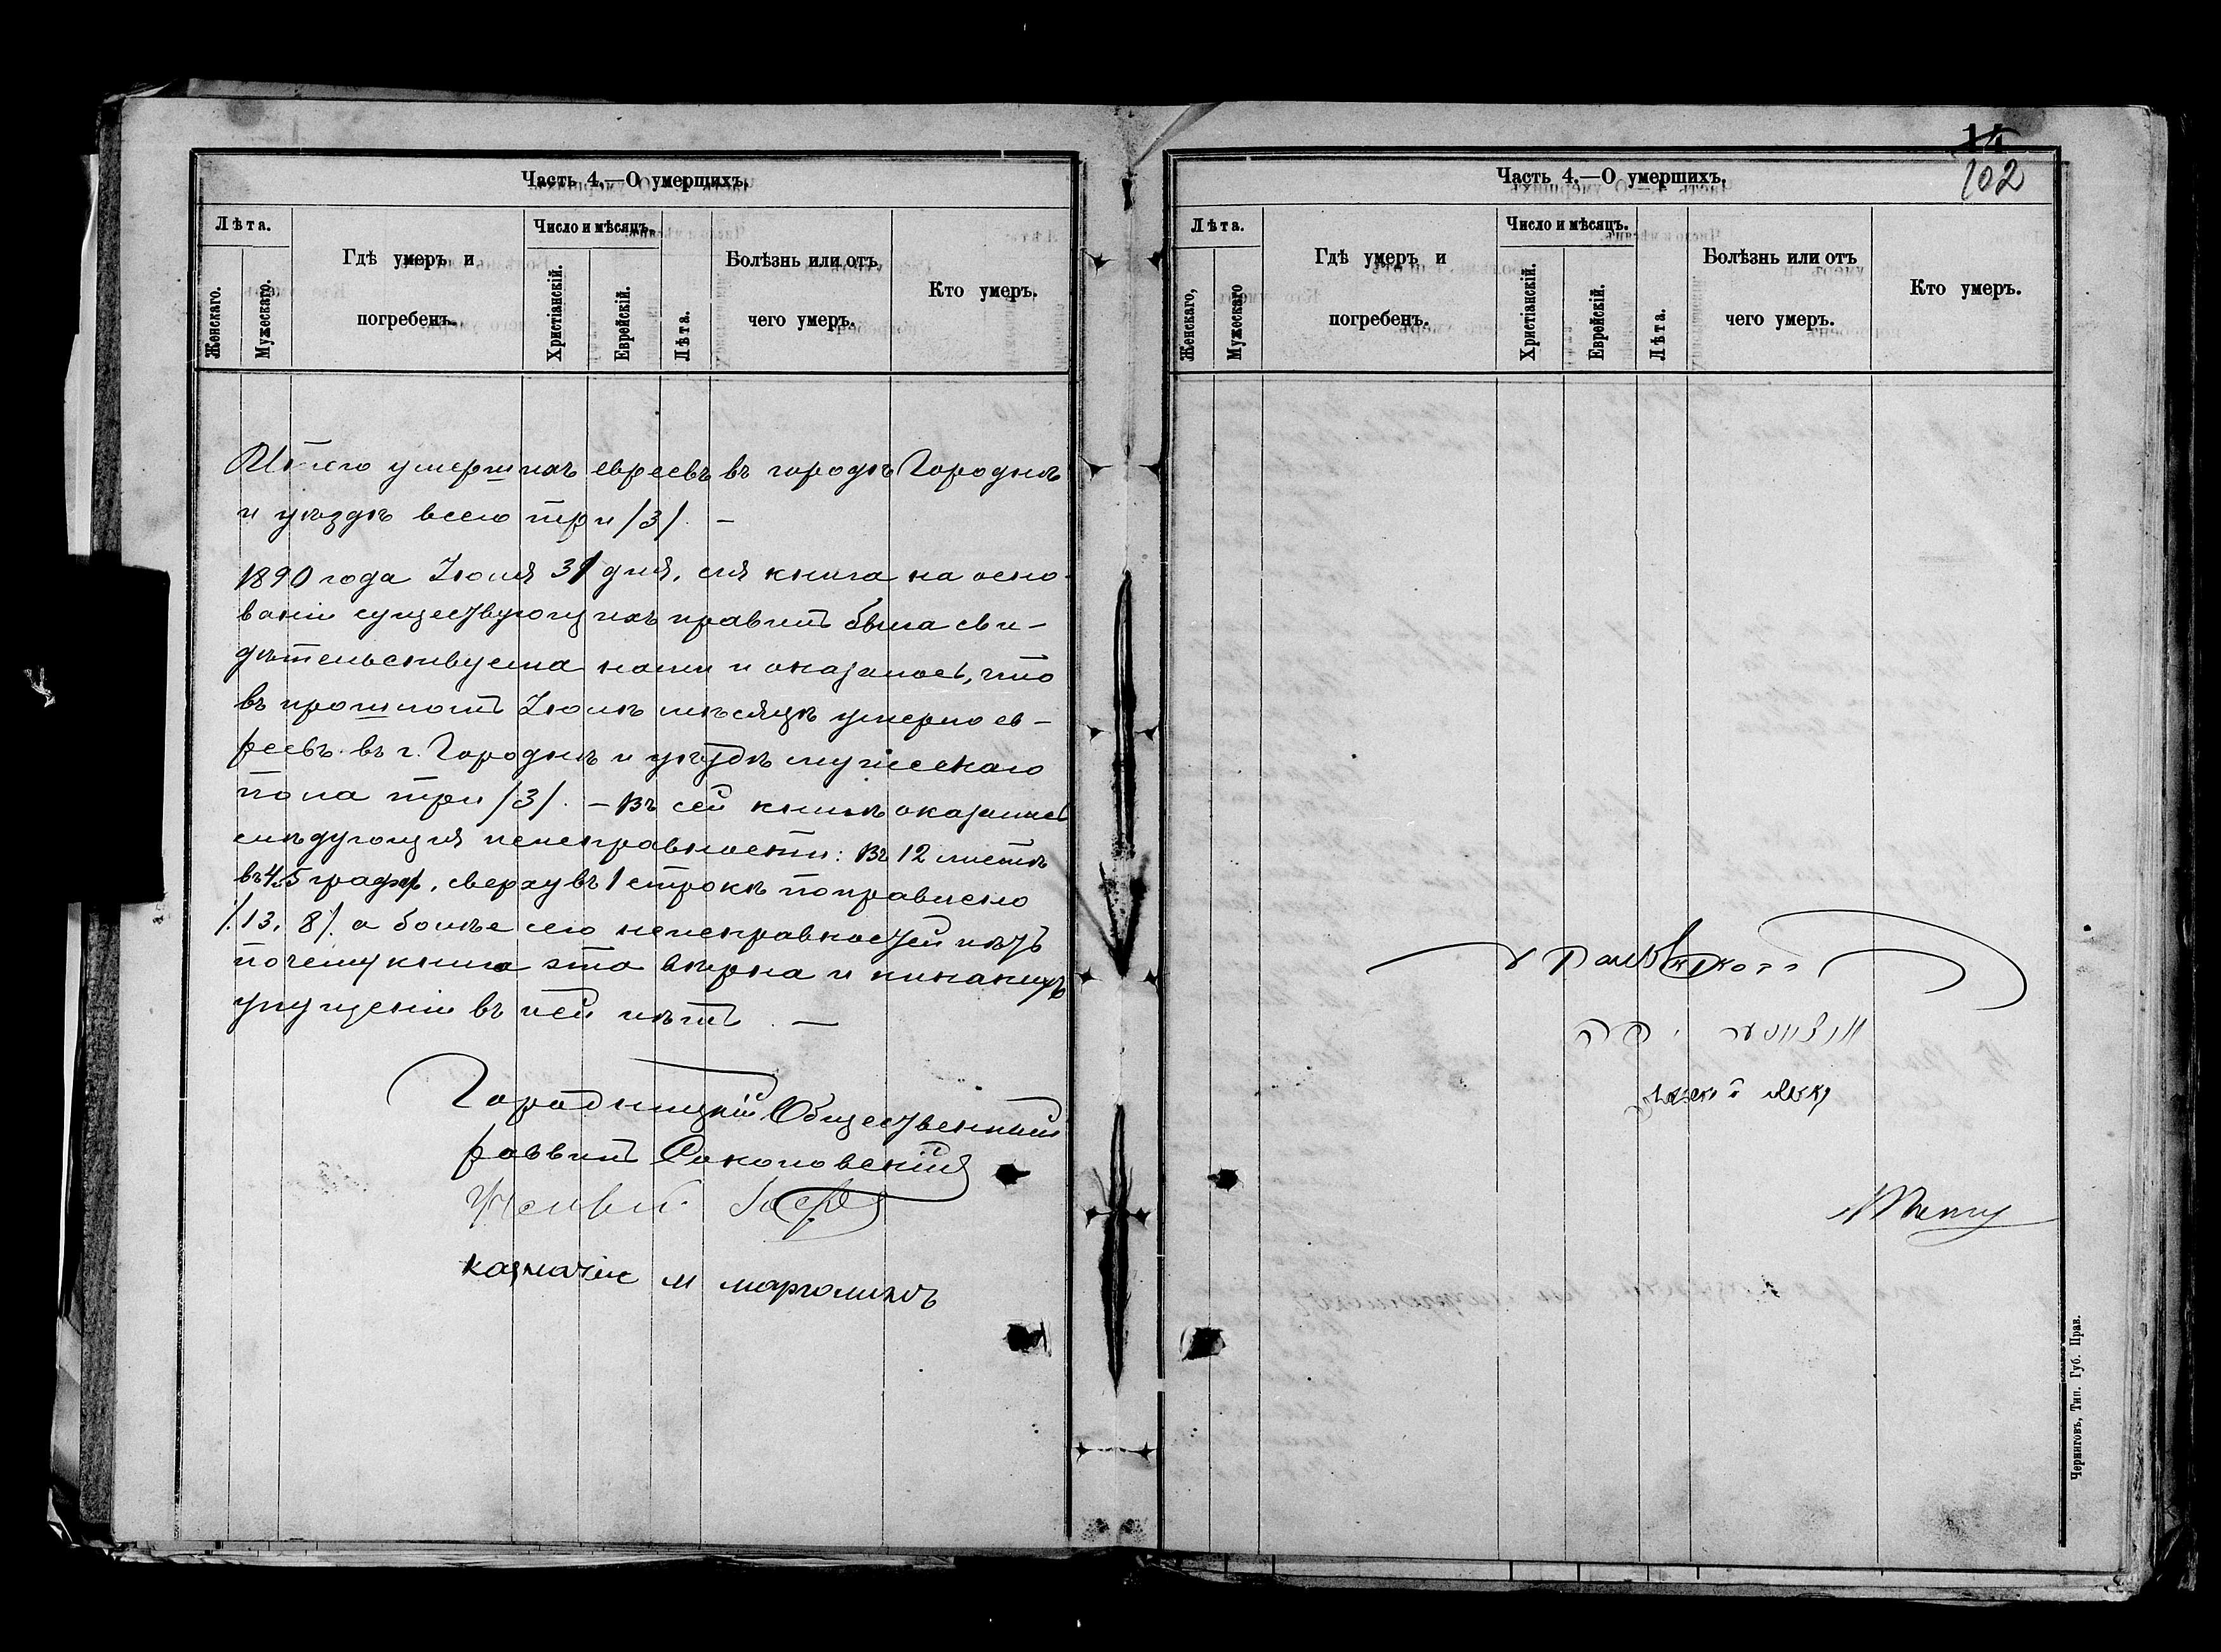 Часть 4.—О умершихъ.
Лѣта.
Женскаго.
Мужескаго.
Гдѣ умеръ и
погребенъ.
Число и мѣсяцъ.
Христіанскій.
Еврейскій.
Лѣта.
Болѣзнь или отъ
чего умеръ.
Кто умеръ.
Итого умершихъ евреевъ въ городѣ Городнѣ
и уѣздѣ всего три /3/. —
1890 года Іюля 31 дня, сія книга на осно-
ваніи существующихъ правилъ была сви-
дѣтельствуема нами и оказалось, что
въ прошломъ Іюлѣ мѣсяцѣ умерло ев-
реевъ въ г. Городнѣ и уѣздѣ мужескаго
пола три /3/. — Въ сей книгѣ оказались
слѣдующія неисправности: Въ 12 листѣ
въ 4, 5 граф, сверху въ 1 строкѣ поправлено
/.13, 8/. а болѣе сего неисправностей нѣтъ
почему книга эта вѣрна и никакихъ
упущеній въ ней нѣтъ. —
Городницкій Общественный
раввинъ Соколовскій
казначеи М Марголинъ
14
102
Часть 4.—О умершихъ.
Лѣта.
Женскаго,
Мужескаго
Гдѣ умеръ и
погребенъ.
Число и мѣсяцъ.
Христіанскій.
Еврейскій.
Лѣта.
Болѣзнь или отъ
чего умеръ.
Кто умеръ.
Черниговъ, Тип. Губ. Прав.